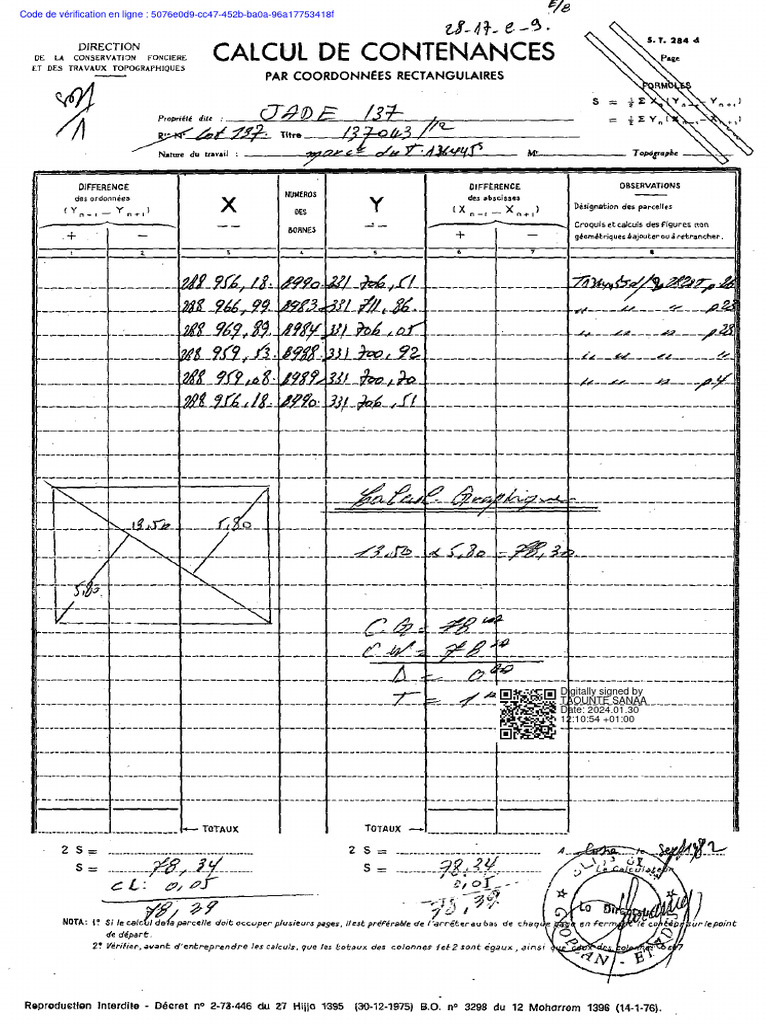 Code de vérification en ligne : 5076e0d9-cc47-452b-ba0a-96a17753418f
E/B
28-17-e-9.
DIRECTION
DE LA CONSERVATION FONCIERE
ET DES TRAVAUX TOPOGRAPHIQUES
CALCUL DE CONTENANCES
PAR COORDONNÉES RECTANGULAIRES
S. T. 284 d
Page
FORMULES
Propriété dite : JADE 137
Lot 137 Titre 137043/12
Nature du travail : du T. 136445 Mr Topographe
DIFFERENCE des ordonnées (Y n-1 — Y n+1)
X
NUMEROS DES BORNES
Y
DIFFERENCE des abscisses (X n-1 — X n+1)
OBSERVATIONS
Désignation des parcelles
Croquis et calculs des figures non géométriques à ajouter ou à retrancher.
+ — + —
1 2 3 4 5 6 7 8
288 956,18 B990 331 706,51
288 966,99 B983 331 711,86 " " " p23
288 969,89 B984 331 706,05 " " " p28
288 959,53 B988 331 700,92 " " " "
288 959,08 B989 331 700,70 " " " p4
288 956,18 B990 331 706,51
Calcul Graphique
13,50 5,80
5,80
13,50 x 5,80 = 78,30
= 78
= 78
Δ = 0
T = 1
Digitally signed by
TAOUNTE SANAA
Date: 2024.01.30
12:10:54 +01:00
TOTAUX TOTAUX
2 S = 2 S =
S = 78,34 S = 78,34
CL: 0,05 0,05
78,39 78,39
A Casa le Sept 1982
Le Calculateur
Le Directeur
NOTA: 1º Si le calcul de la parcelle doit occuper plusieurs pages, il est préférable de l'arrêter au bas de chaque page en fermant le contour sur le point
de départ.
2º Vérifier, avant d'entreprendre les calculs, que les totaux des colonnes 1 et 2 sont égaux, ainsi que ceux des colonnes 6 et 7
Reproduction Interdite - Décret nº 2-73-446 du 27 Hijja 1395 (30-12-1975) B.O. nº 3298 du 12 Moharrem 1396 (14-1-76).